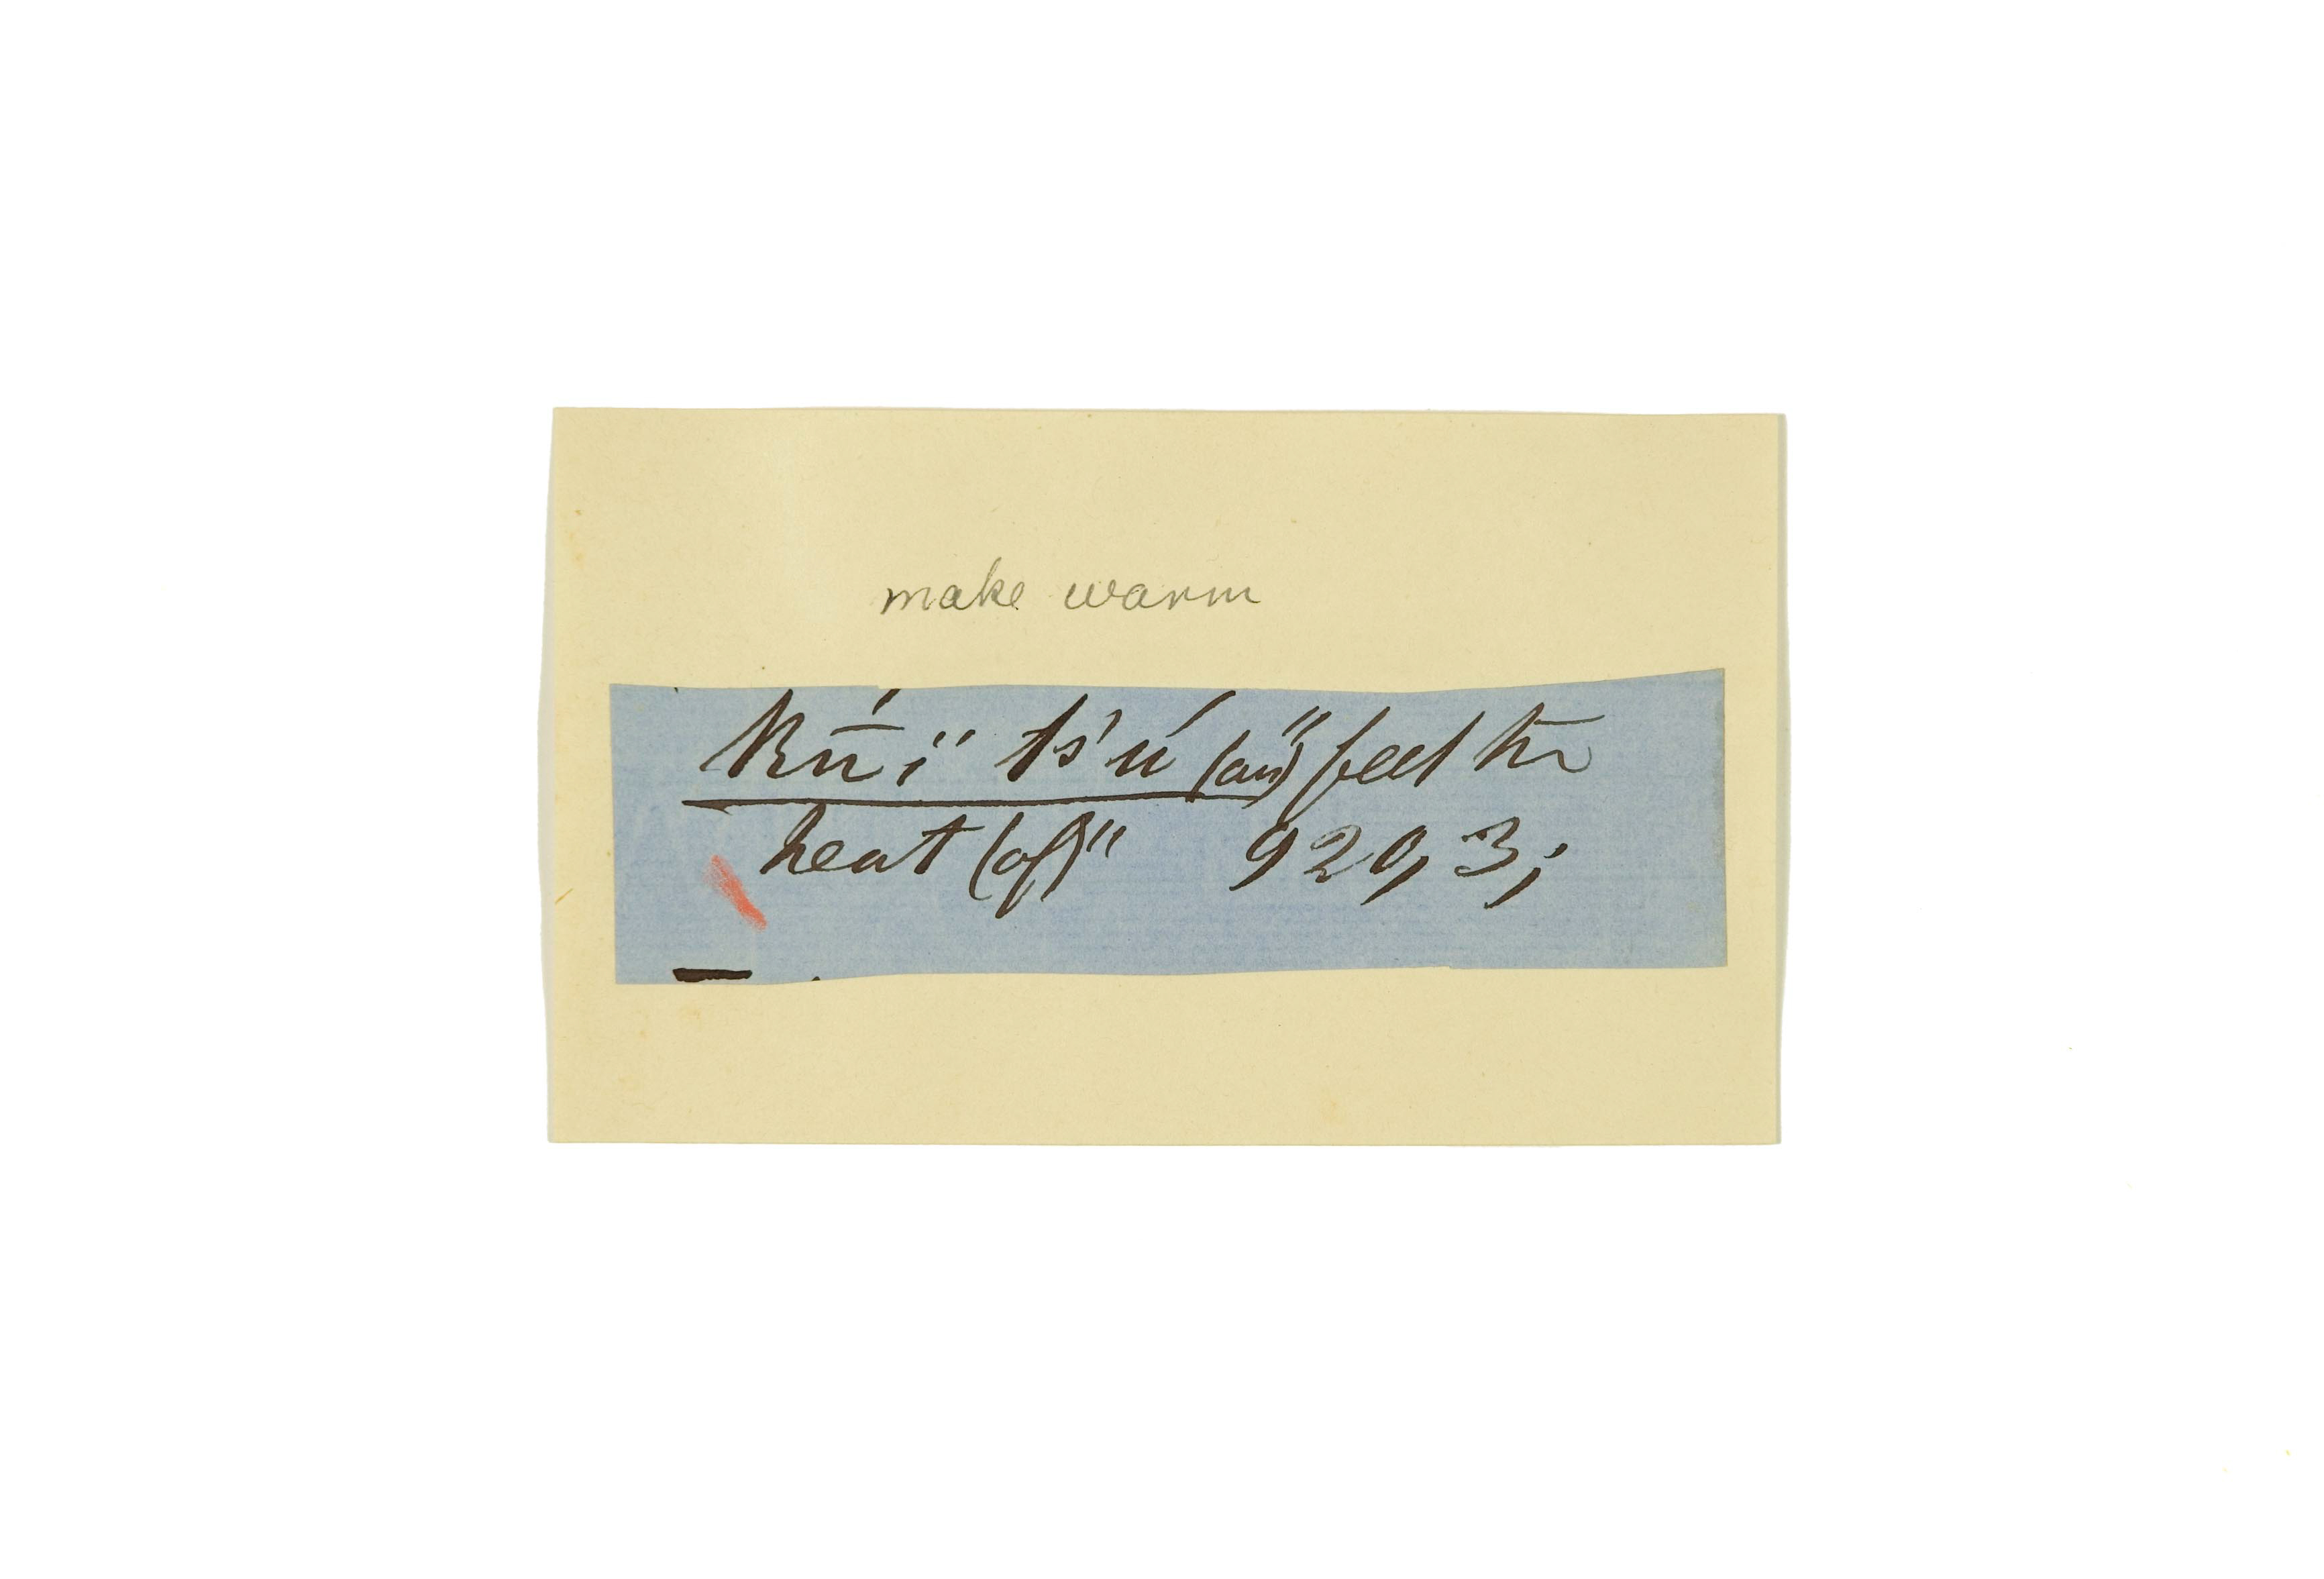 make warm
Kū́ï ts'ú (aü) "feel the
heat (of)" 920, 3;